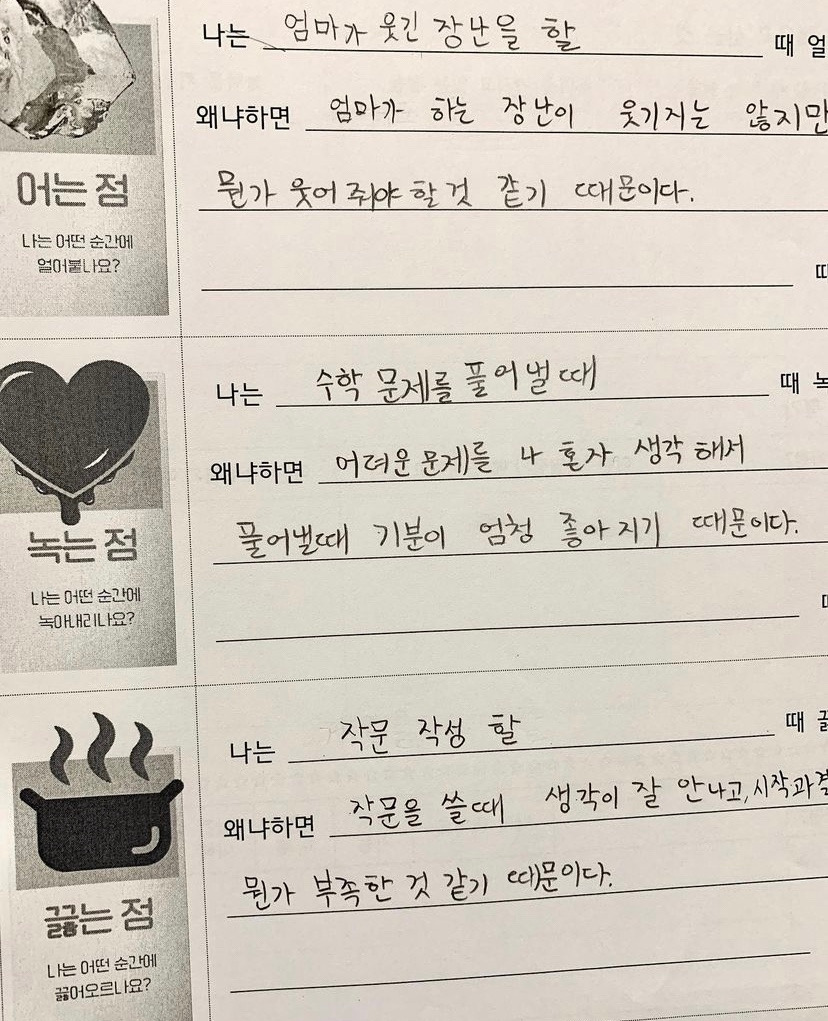 나는 엄마가 웃긴 장난을 할 때 얼
왜냐하면 엄마가 하는 장난이 웃기지는 않지만
뭔가 웃어 줘야 할 것 같기 때문이다.
어는 점
나는 어떤 순간에
얼어붙나요?
나는 수학 문제를 풀어낼 때 때 녹
왜냐하면 어려운 문제를 나 혼자 생각 해서
풀어낼때 기분이 엄청 좋아 지기 때문이다.
녹는 점
나는 어떤 순간에
녹아내리나요?
나는 작문 작성 할 때 끓
왜냐하면 작문을 쓸때 생각이 잘 안나고, 시작과
뭔가 부족한 것 같기 때문이다.
끓는 점
나는 어떤 순간에
끓어오르나요?